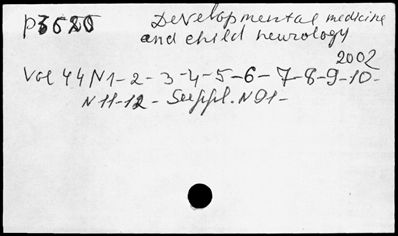 P3680 Developmental medicine
and child neurology
2002
Vol 44 N1-2-3-4-5-6-7-8-9-10-
N11-12- Suppl. N91-